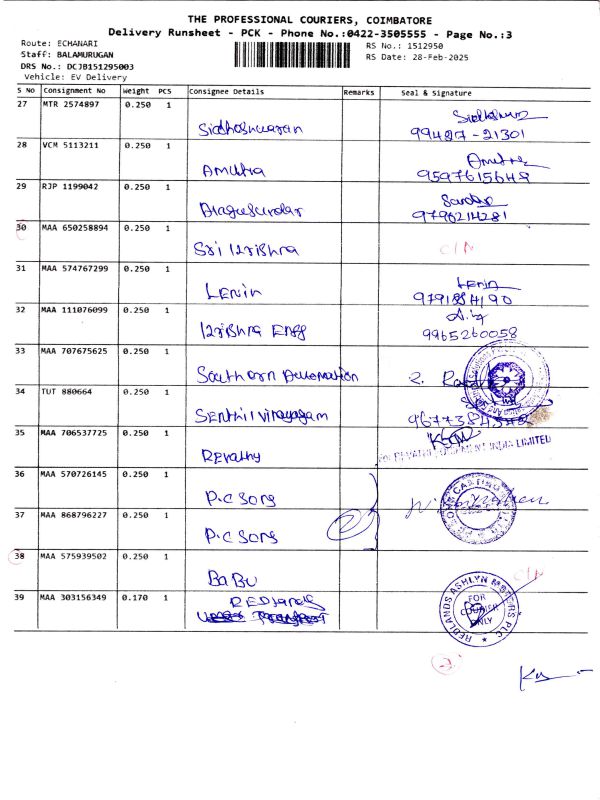 THE PROFESSIONAL COURIERS, COIMBATORE
Delivery Runsheet - PCK - Phone No.:0422-3505555 - Page No.:3
Route: ECHANARI
RS No.: 1512950
Staff: BALAMURUGAN
RS Date: 28-Feb-2025
DRS No.: DCJB151295003
Vehicle: EV Delivery
S No Consignment No Weight PCS Consignee Details Remarks Seal & Signature
27 MTR 2574897 0.250 1
99487-21301
28 VCM 5113211 0.250 1 Amutha
9597615648
29 RJP 1199042 0.250 1
9796214281
30 MAA 650258894 0.250 1 Sri Krishna
31 MAA 574767299 0.250 1 Lenin Lenin
32 MAA 111076099 0.250 1 Krishna Engg
9965260058
33 MAA 707675625 0.250 1 Southern Automation
34 TUT 880664 0.250 1 Senthil Vinayagam
35 MAA 706537725 0.250 1 Revathy
INDIA LIMITED
36 MAA 570726145 0.250 1 P.C Sons
37 MAA 868796227 0.250 1 P.C Sons
38 MAA 575939502 0.250 1 BaBu
39 MAA 303156349 0.170 1 REDlands
REDLANDS ASHLYN MOTORS PLC
FOR
COURIER
ONLY